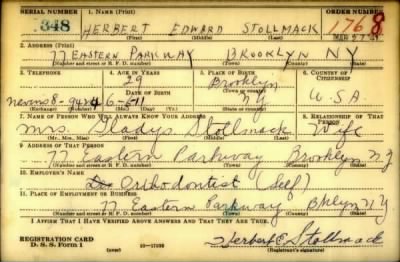 SERIAL NUMBER 1. NAME (Print) ORDER NUMBER
348 HERBERT EDWARD STOLLMACK 1768
(First) (Middle) (Last)
2. ADDRESS (Print)
77 EASTERN PARKWAY BROOKLYN NY
(Number and street or R. F. D. number) (Town) (County) (State)
3. TELEPHONE 4. AGE IN YEARS 5. PLACE OF BIRTH 6. COUNTRY OF CITIZENSHIP
29 Brooklyn
DATE OF BIRTH (Town or county)
Nevins 8-9424 6-6-11 N.Y. U.S.A.
(Exchange) (Number) (Mo.) (Day) (Yr.) (State or country)
7. NAME OF PERSON WHO WILL ALWAYS KNOW YOUR ADDRESS 8. RELATIONSHIP OF THAT PERSON
Mrs. Gladys Stollmack Wife
(Mr., Mrs., Miss) (First) (Middle) (Last)
9. ADDRESS OF THAT PERSON
77 Eastern Parkway Brooklyn N.Y.
(Number and street or R. F. D. number) (Town) (County) (State)
10. EMPLOYER'S NAME
Orthodontist (Self)
11. PLACE OF EMPLOYMENT OR BUSINESS
77 Eastern Parkway Bklyn N.Y
(Number and street or R. F. D. number) (Town) (County) (State)
I AFFIRM THAT I HAVE VERIFIED ABOVE ANSWERS AND THAT THEY ARE TRUE.
REGISTRATION CARD
D. S. S. Form 1 Herbert E Stollmack
(over) (Registrant's signature)